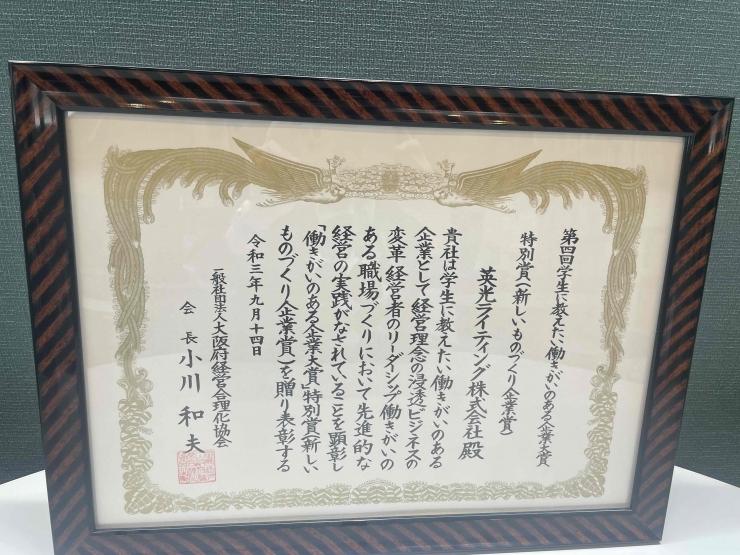 第四回学生に教えたい働きがいのある企業大賞
特別賞(新しいものづくり企業賞)
英光ライティング株式会社 殿
貴社は学生に教えたい働きがいのある
企業として経営理念の浸透ビジネスの
変革経営者のリーダーシップ働きがいの
ある職場づくりにおいて先進的な
経営の実践がなされていることを顕彰し
「働きがいのある企業大賞」特別賞(新しい
ものづくり企業賞)を贈り表彰する
令和三年九月十四日
一般社団法人大阪府経営合理化協会
会長 小川 和夫